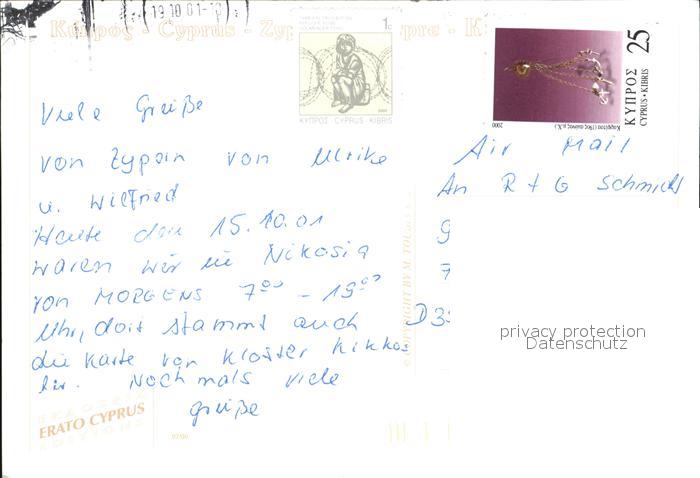 19.10.01-1
Κύπρος - Cyprus - Zyp
1c
ΚΥΠΡΟΣ CYPRUS KIBRIS
ΚΥΠΡΟΣ 25
CYPRUS•KIBRIS
2000
Viele Grüße
von Zypern von Ulrike
u. Wilfried
Heute den 15.10.01
waren wir in Nikosia
von MORGENS 7⁰⁰ - 19⁰⁰
Uhr, dort stammt auch
die Karte von Kloster Kikkos
her. Nochmals viele
grüße
Air Mail
An R + G Schmidt
9
7
D 35
privacy protection
Datenschutz
© COPYRIGHT BY M.
ERATO CYPRUS